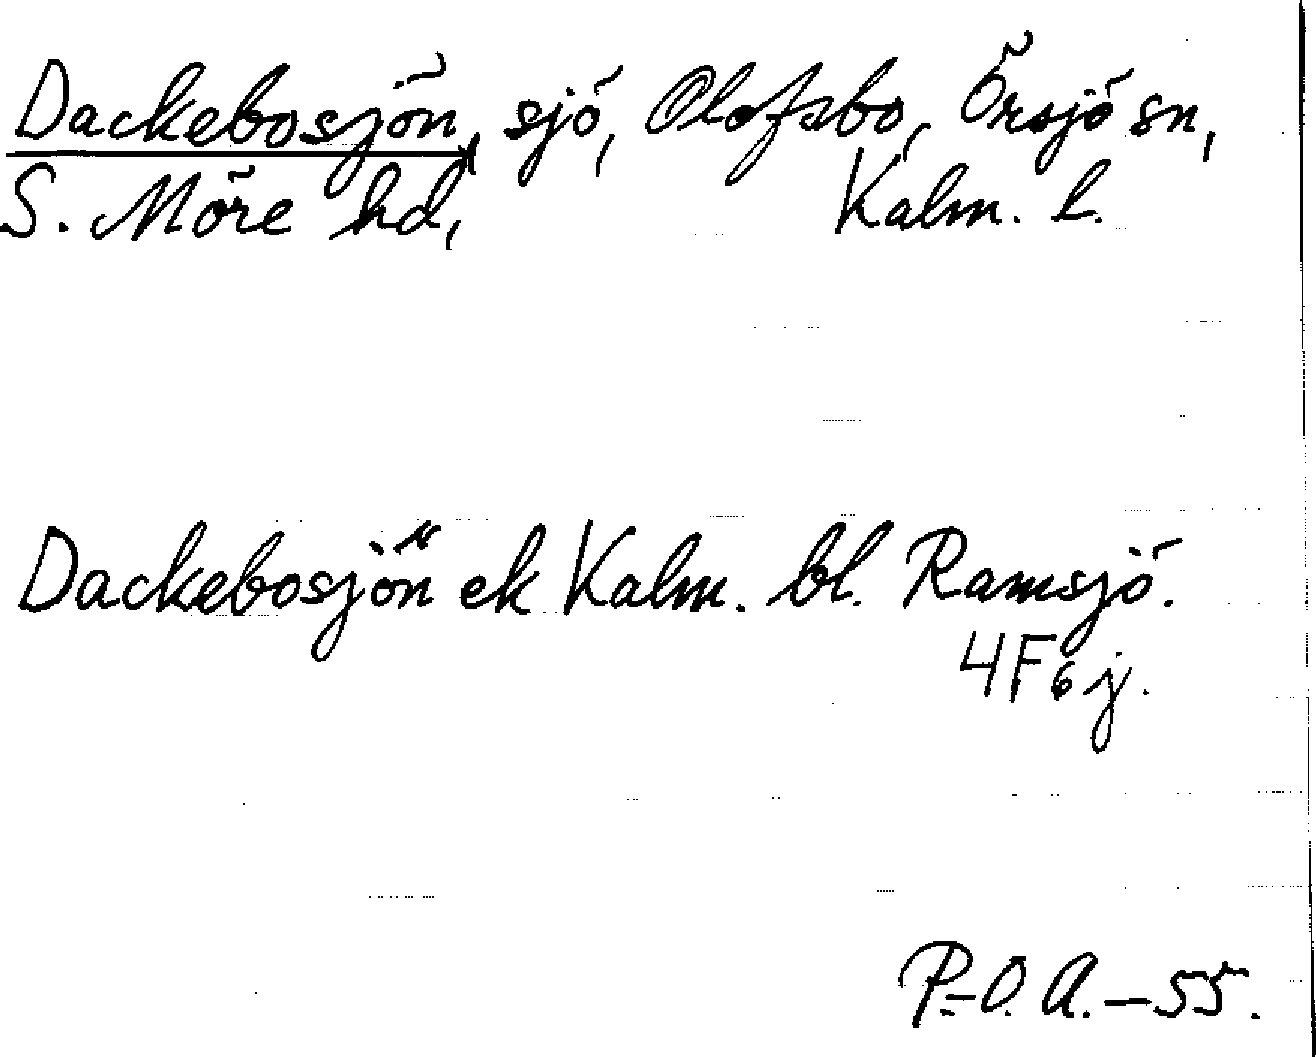 Dackebosjön, sjö, Olofsbo, Örsjö sn,
S. Möre hd, Kalm. l.
Dackebosjön ek Kalm. bl. Ramsjö.
4F6j.
P.-O. A.-55.